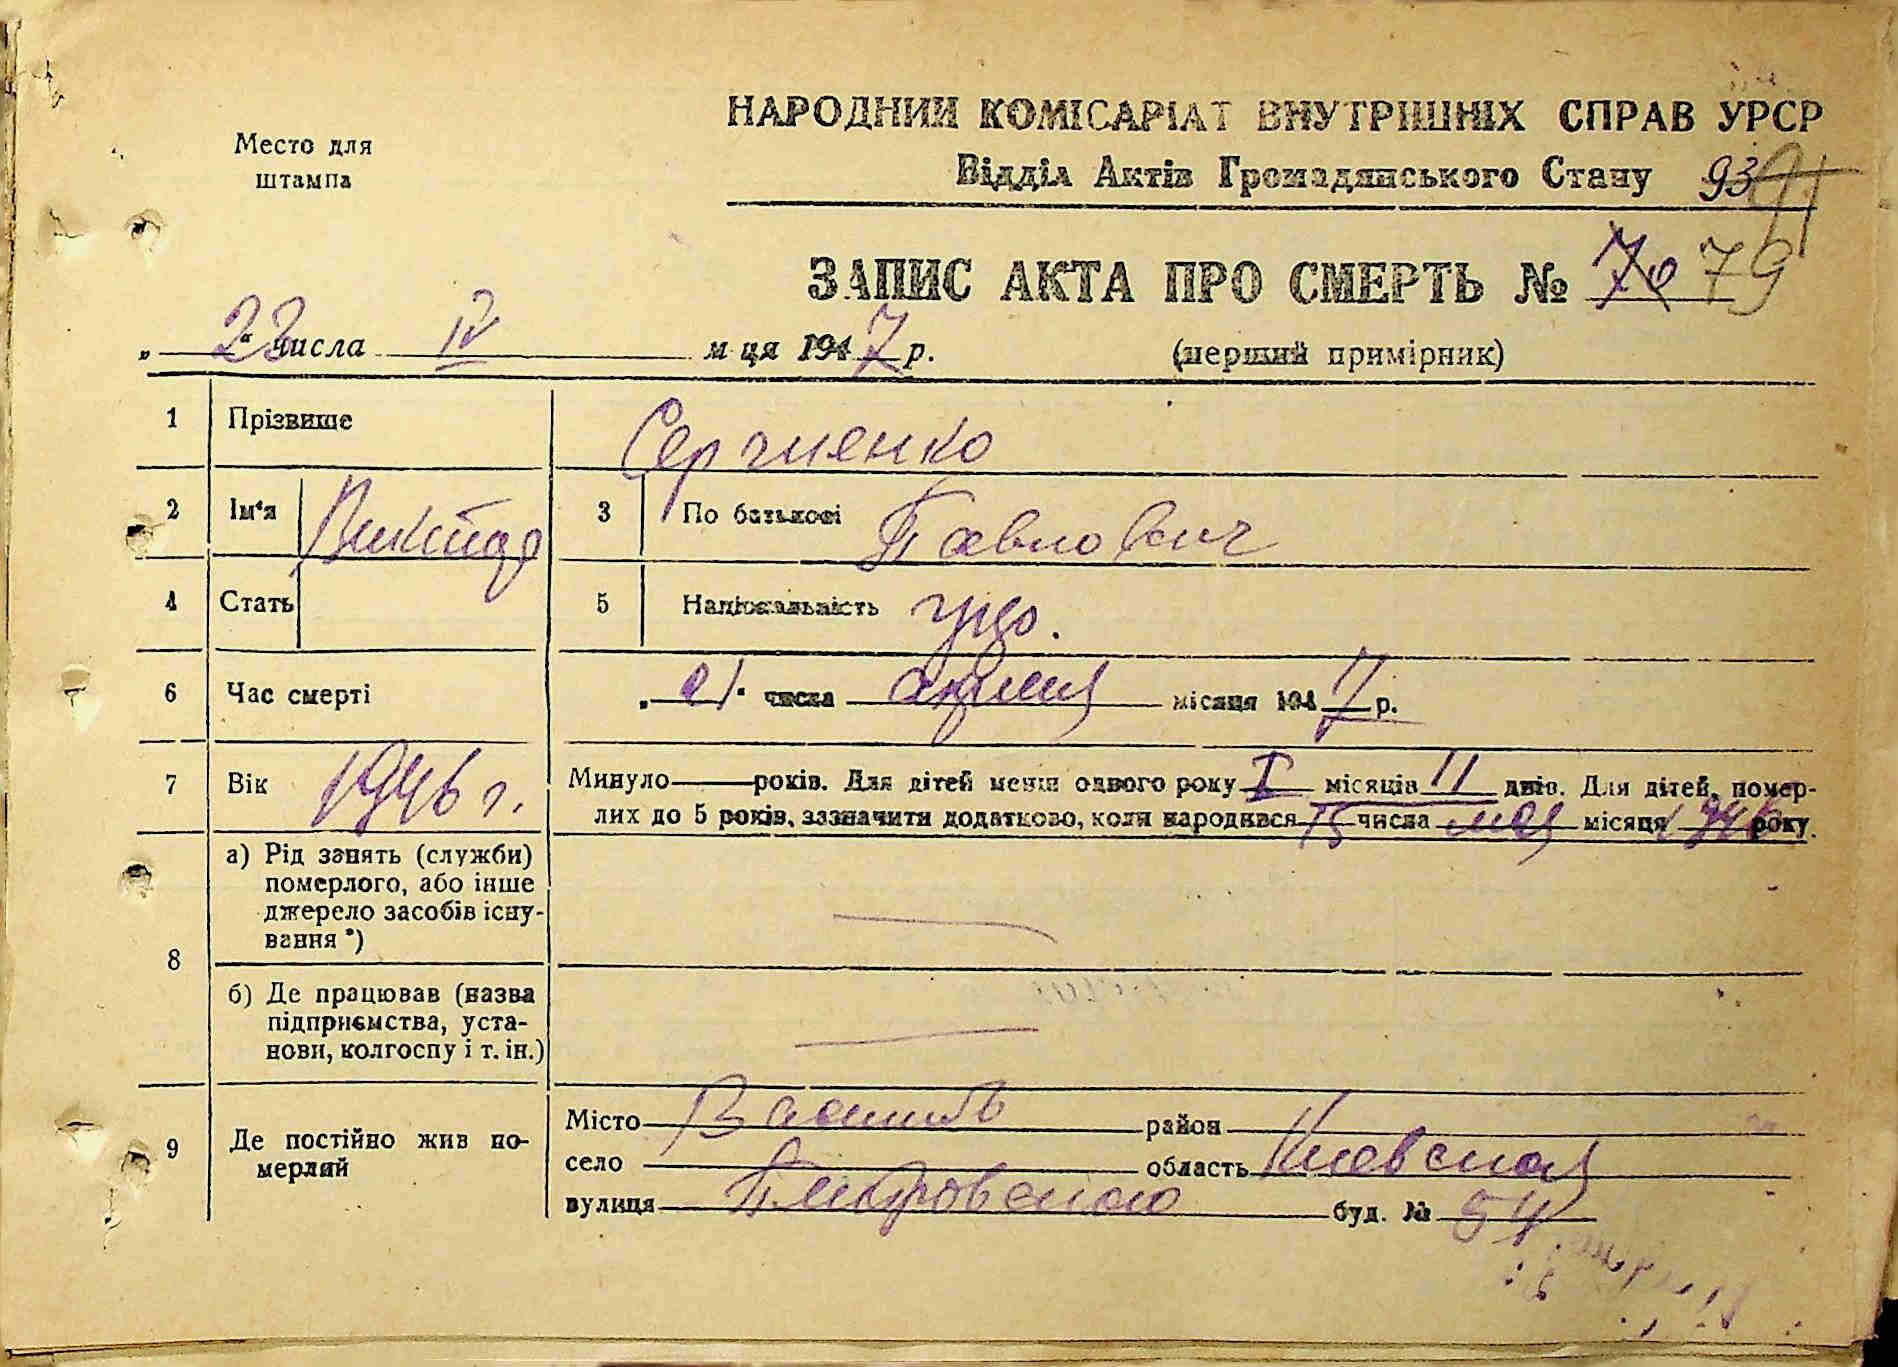 Место для
штампа
НАРОДНИЙ КОМІСАРІАТ ВНУТРІШНІХ СПРАВ УРСР
Відділ Актів Громадянського Стану 93 91
ЗАПИС АКТА ПРО СМЕРТЬ № 70 79
„ 23 " числа IV м ця 1947 р. (перший примірник)
1 Прізвише Сергиенко
2 Ім'я Виктор 3 По батькові Павлович
4 Стать 5 Національність укр.
6 Час смерті „ 21 " числа апреля місяця 1947 р.
7 Вік 1946 г. Минуло — років. Для дітей менш одного року місяців 11 днів. Для дітей, помер-
лих до 5 років, зазначити додатково, коли народився 15 числа мая місяця 1946 року.
8 а) Рід занять (служби)
померлого, або інше
джерело засобів існу-
вання *)
б) Де працював (назва
підприємства, уста-
нови, колгоспу і т. ін.)
9 Де постійно жив по-
мерлий
Місто район
село область Киевская
вулиця буд. № 54